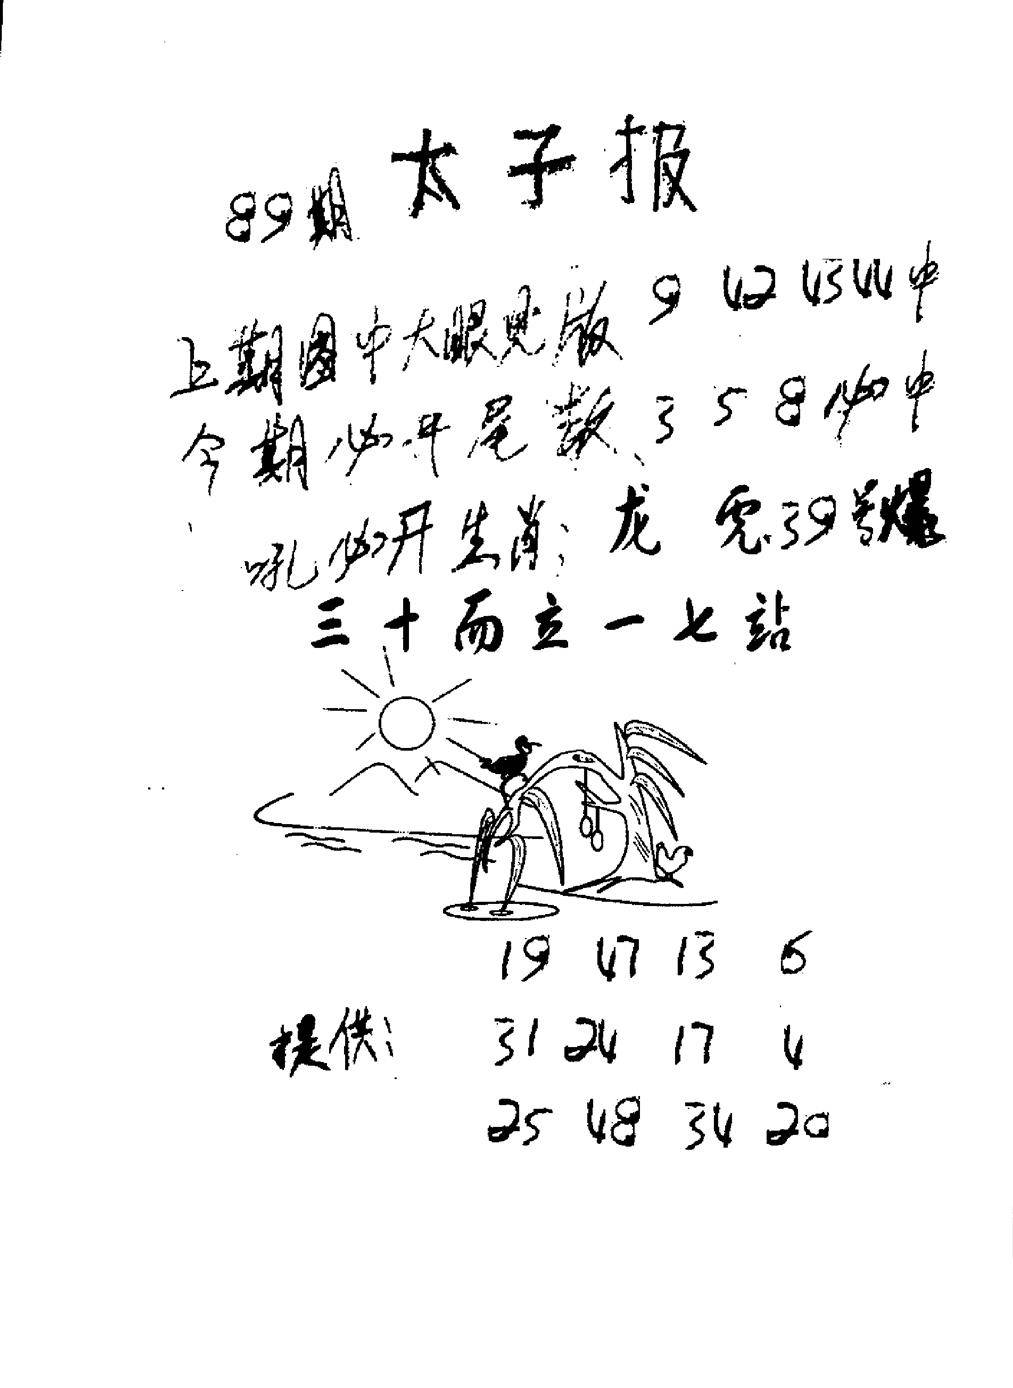 太子报
89期
上期图中大眼见版 9 42 43 44中
今期必开尾数 3 5 8必中
吼必开生肖:龙 虎.39号爆
三十而立一七站
19 47 13 6
提供: 31 24 17 4
25 48 34 20